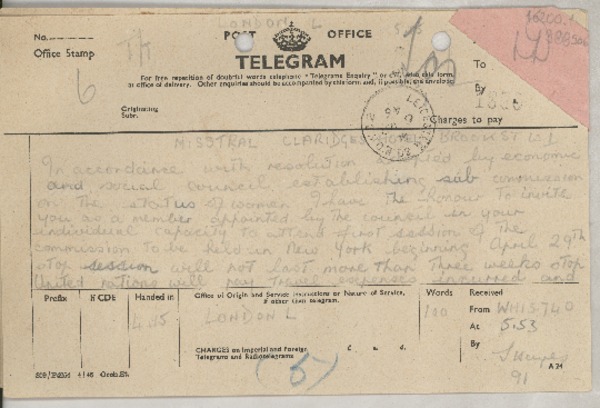 LONDON L
No.
POST OFFICE
Office Stamp
TELEGRAM
For free repetition of doubtful words telephone "Telegrams Enquiry" or call, with this form
at office of delivery. Other enquiries should be accompanied by this form and, if possible, the envelope
To
By
1855
6
Originating
Subr.
Charges to pay
MISSTRAL CLARIDGES HOTEL BROOK ST W1
In accordance with resolution by economic
and social council establishing sub commission
on the status of women I have the honour to invite
you as a member appointed by the council in your
individual capacity to attend first session of the
commission to be held in New York beginning April 29th
stop session will not last more than three weeks stop
United nations will pay travel expenses incurred and
Prefix
X CDE
Handed in
Office of Origin and Service Instructions or Nature of Service,
if other than telegram.
Words
Received
4.45
LONDON L
100
From WHI 5740
At 5.53
CHARGES on Imperial and Foreign
Telegrams and Radiotelegrams
£ s. d.
By
(5)
91
A 24